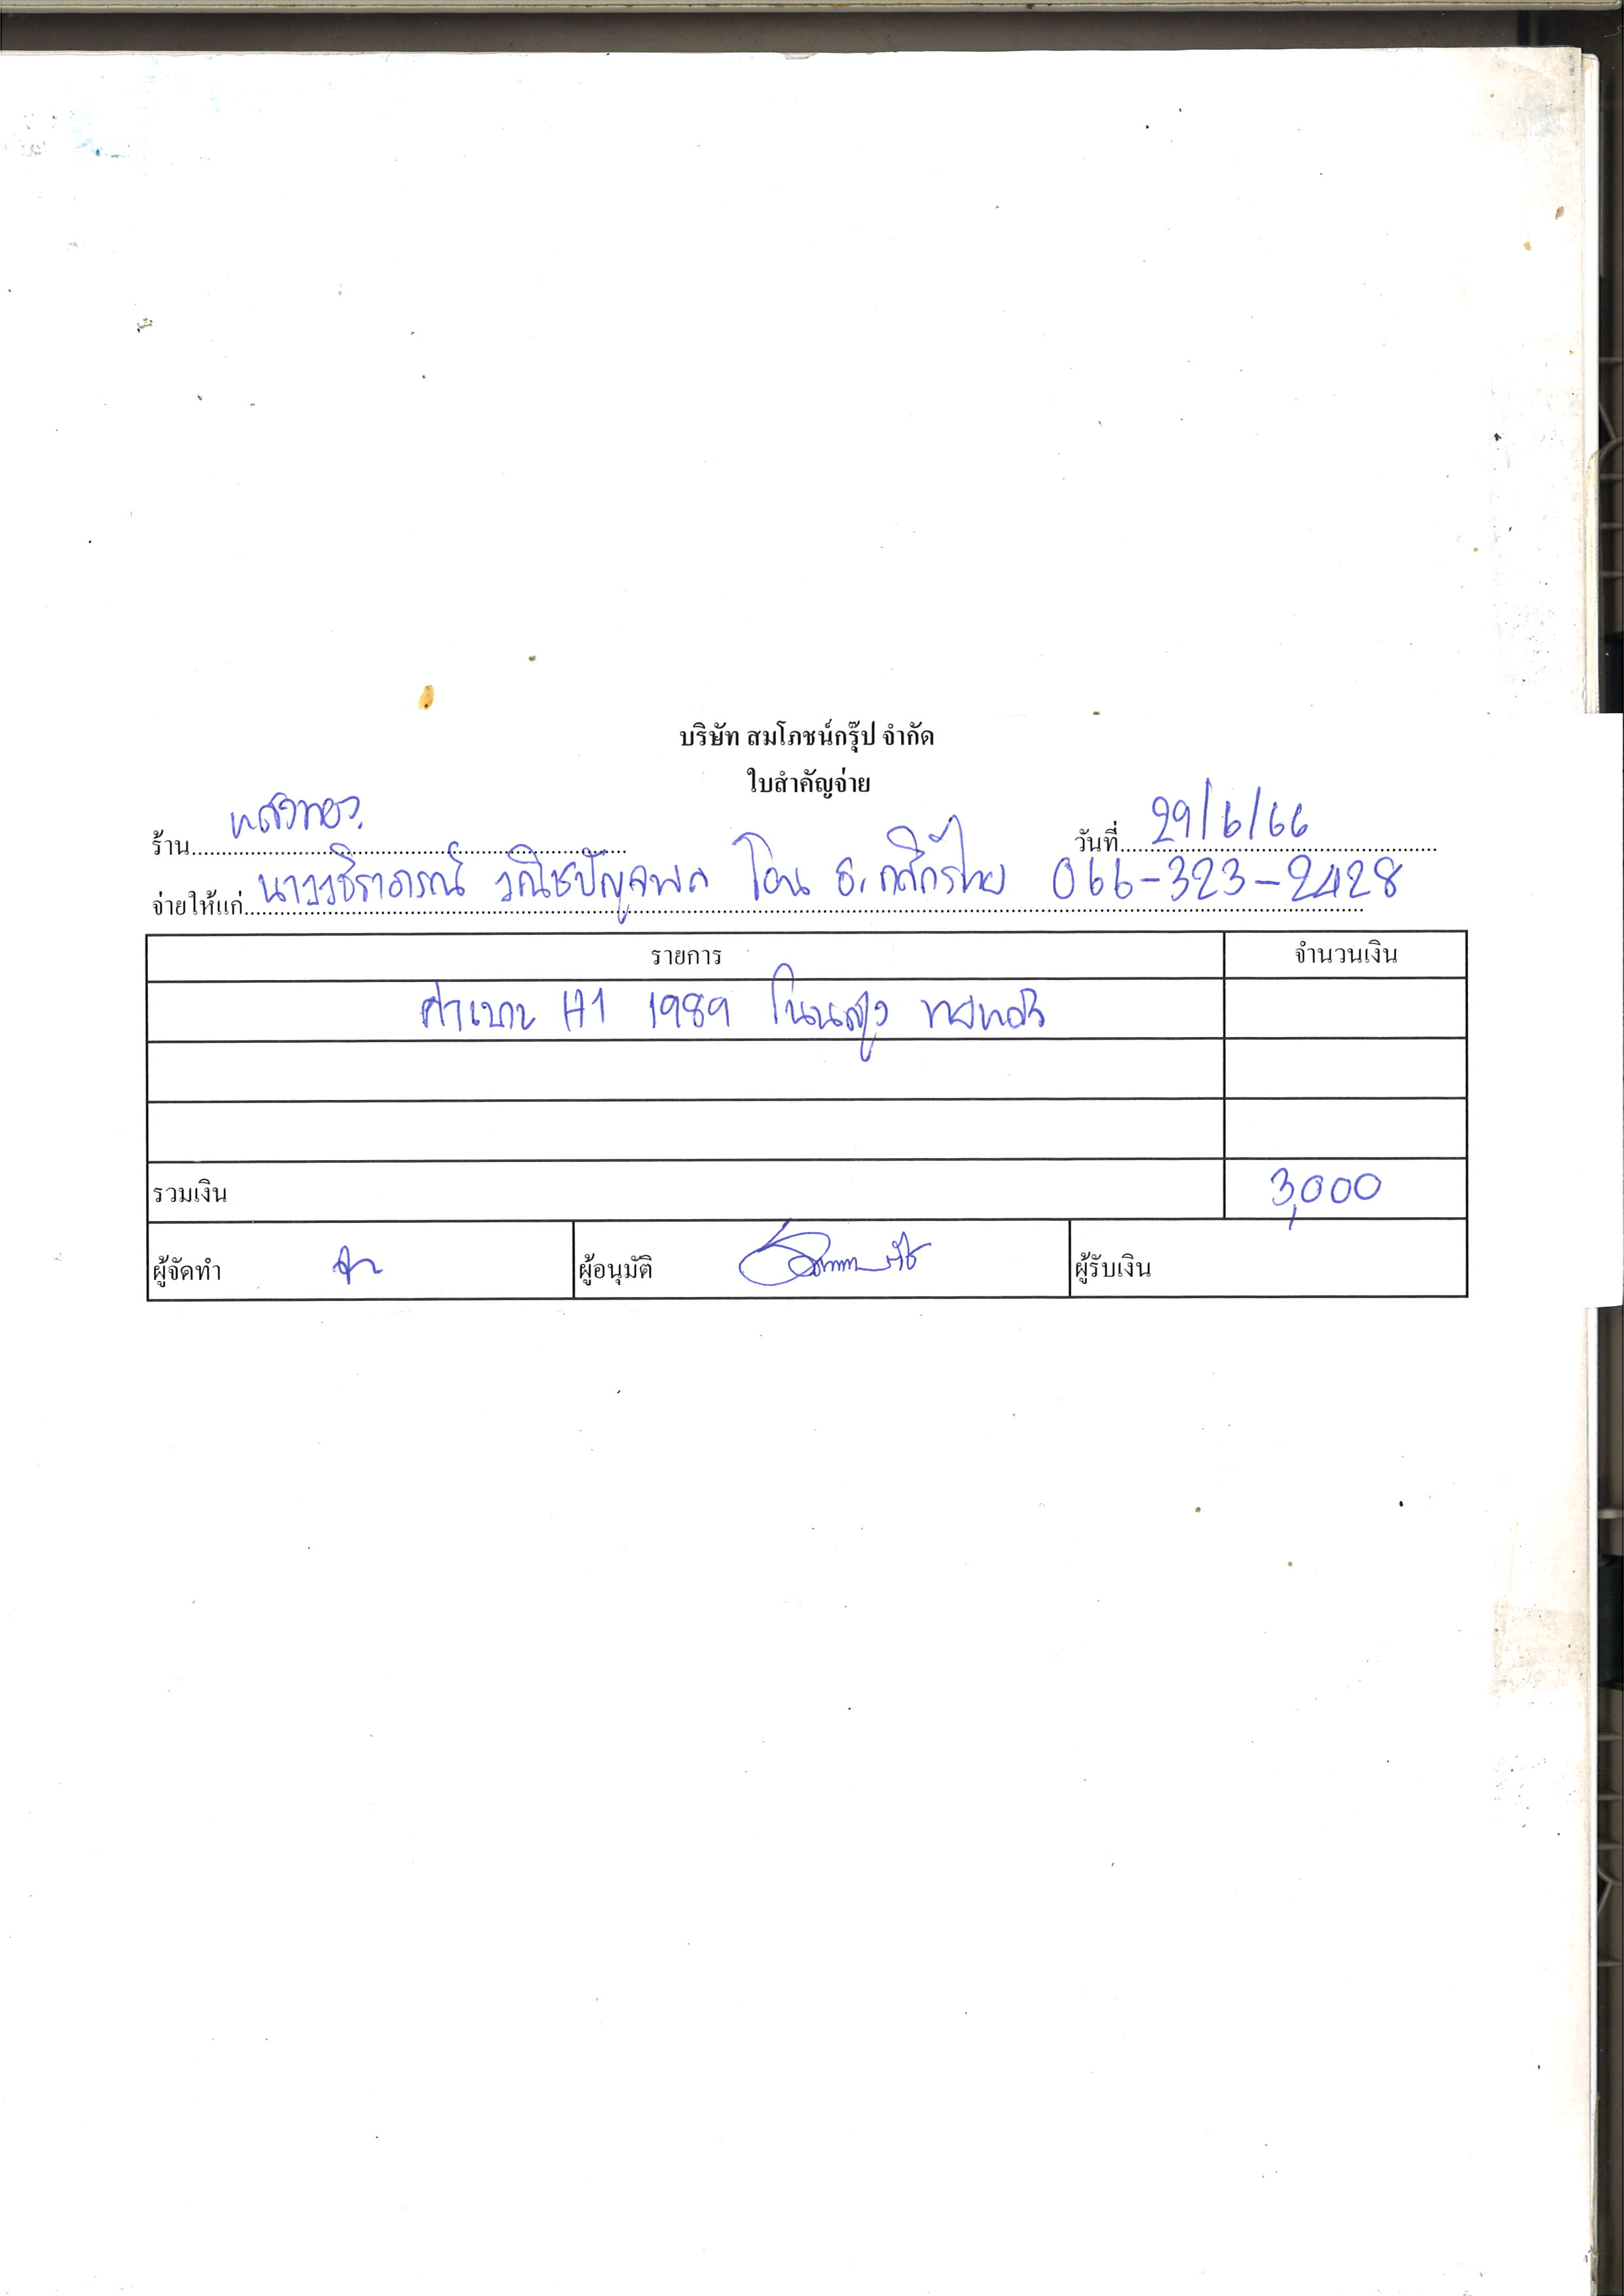 บริษัท สมโภชน์กรุ๊ป จำกัด
ใบสำคัญจ่าย
ร้าน วันที่ 29/6/66
จ่ายให้แก่ นางวชิราภรณ์ วณิชปัญจพล โอน ธ.กสิกรไทย 066-323-2428
รายการ จำนวนเงิน
ค่าเบาะ H1 1989
รวมเงิน 3,000
ผู้จัดทำ ผู้อนุมัติ ผู้รับเงิน